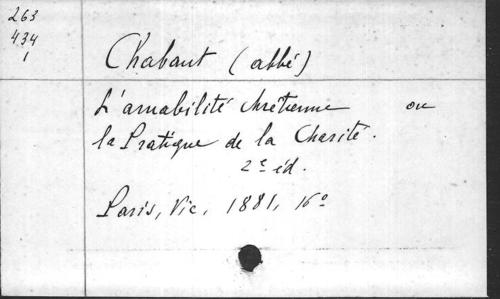 263
434
1
Chabaut (abbé)
L'amabilité chrétienne ou
la Pratique de la Charité.
2e éd.
Paris, Vic, 1881, 16°